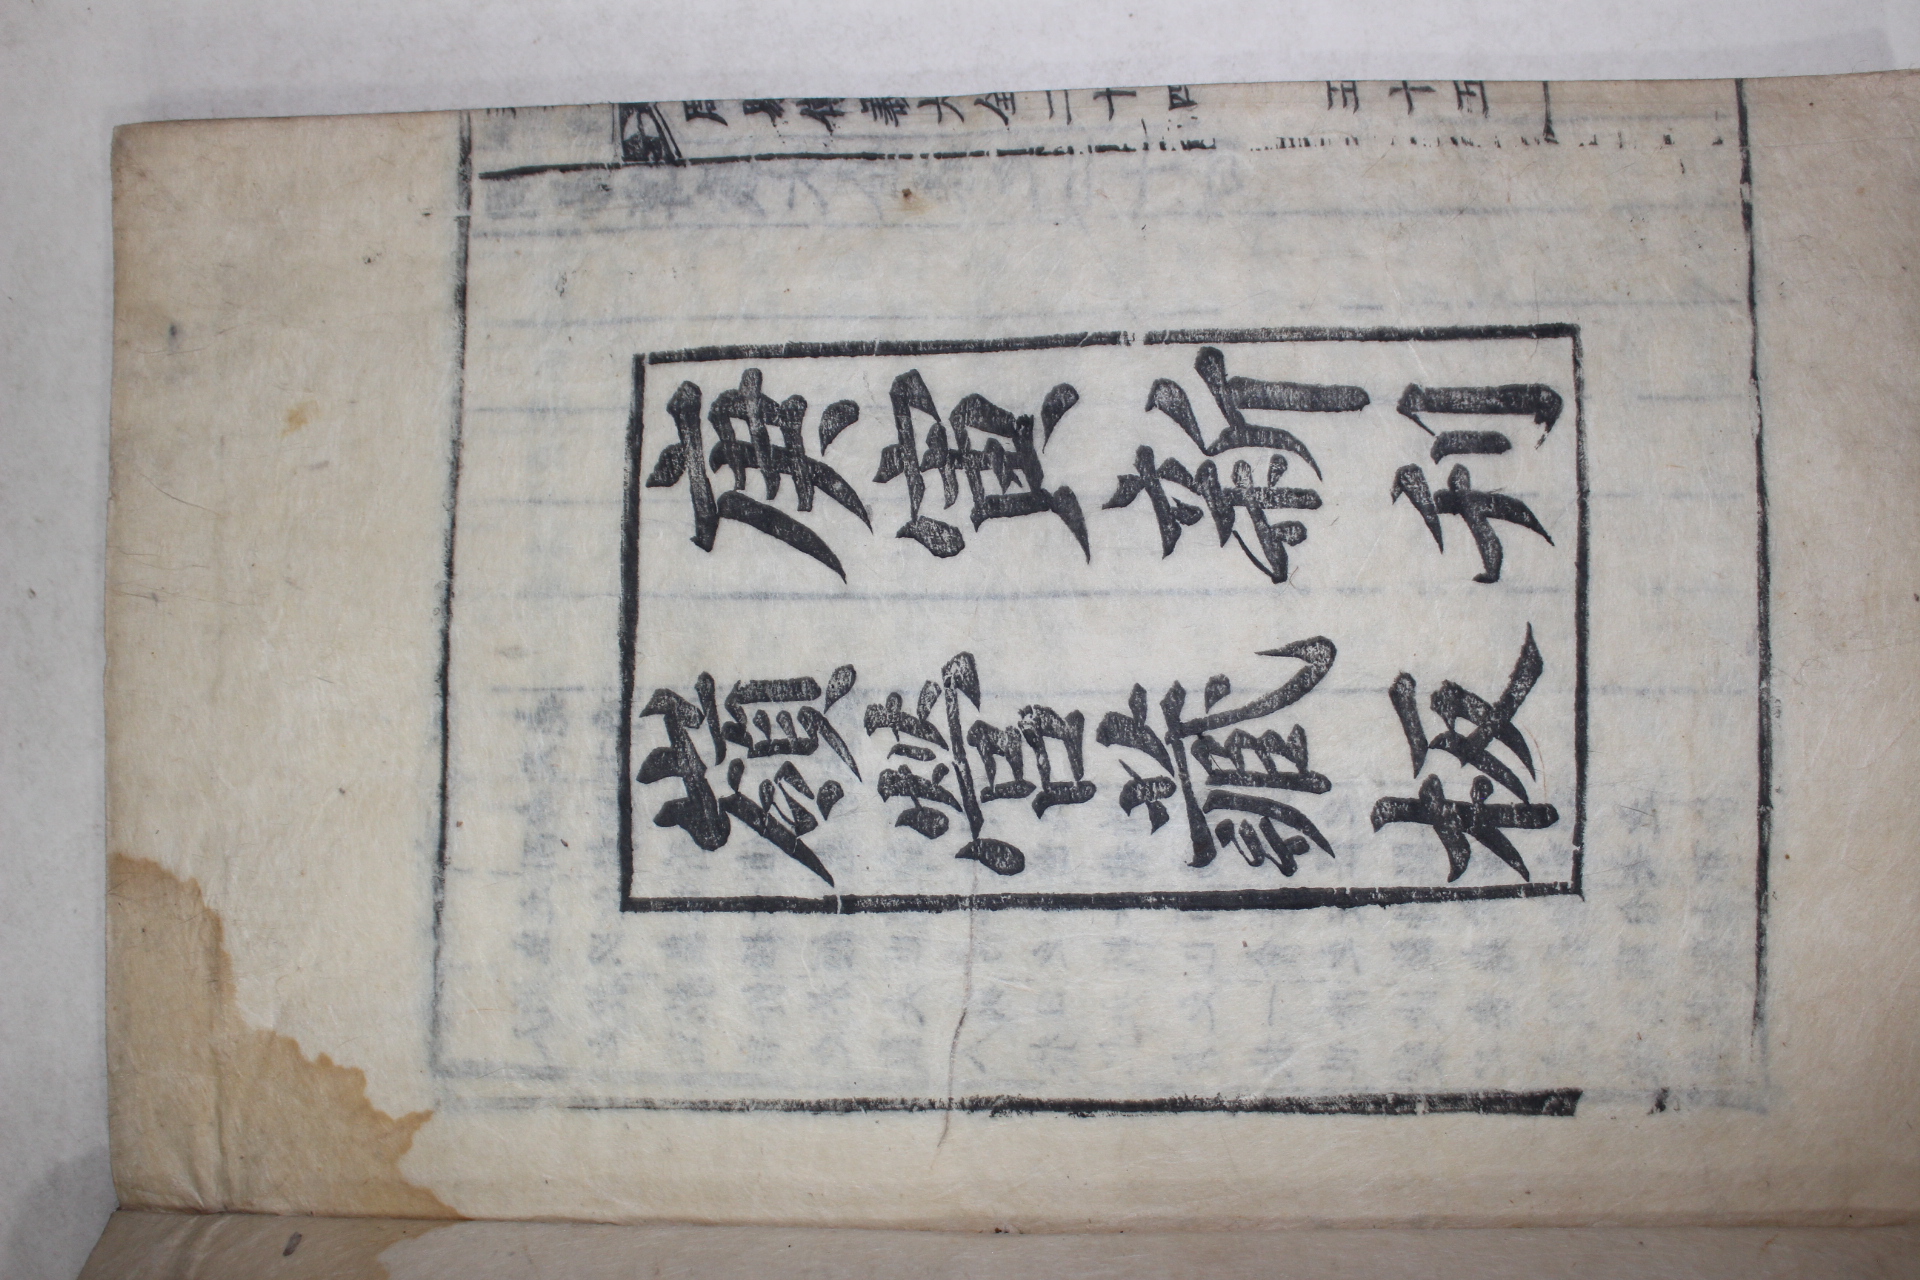 周易傳義大全二十四
五十五
庚寅新刊
嶺營藏板